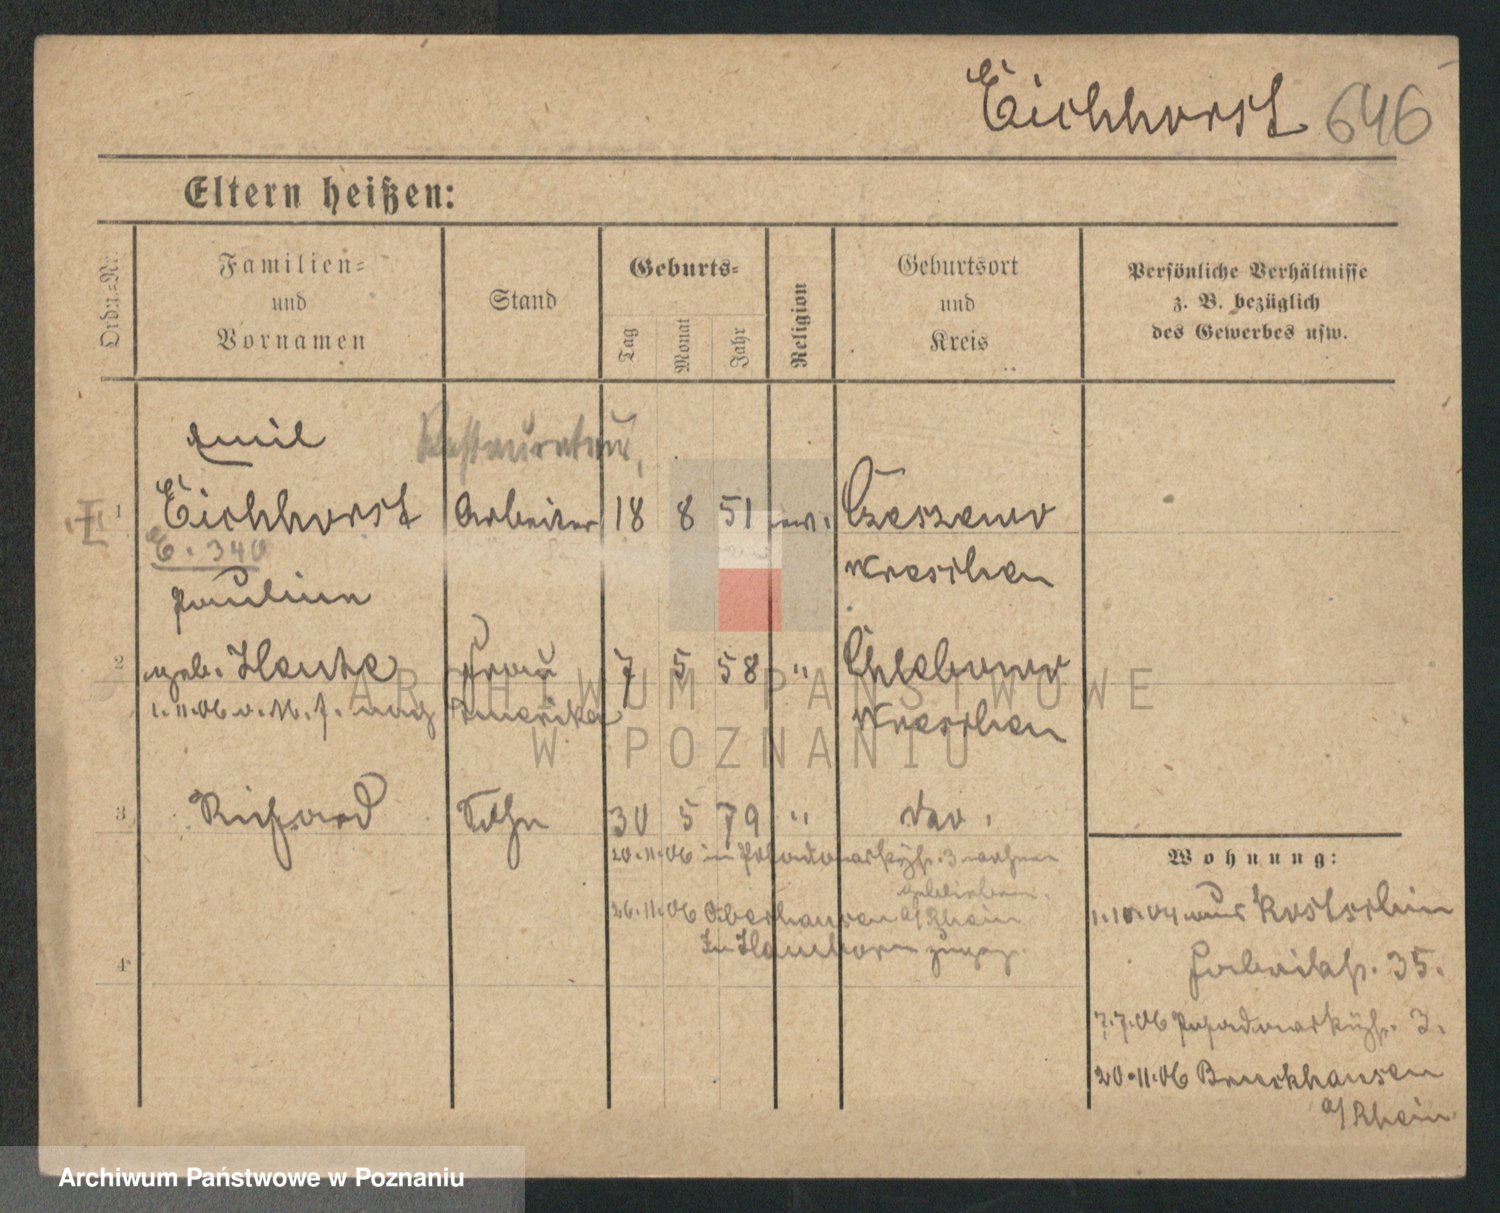 Eichhorst 646
Eltern heißen:
Ordn.-Nr.
Familien-
und
Vornamen
Stand
Geburts-
Tag
Monat
Jahr
Religion
Geburtsort
und
Kreis
Persönliche Verhältnisse
z. B. bezüglich
des Gewerbes usw.
Emil
Restaurateur,
1 Eichhorst Arbeiter 18 8 51 ev. Czeszewo
E. 340
Wreschen
Paulina
2 geb. Frau 7 5 58 " Chlebowo
1.11.06 v. M. f. nach Amerika
Wreschen
3 Richard Sohn 30 5 79 " do.
20.11.06 in 3 wohnen
geblieben.
26.11.06 Oberhausen a/Rhein
In Hamborn zugez.
4
Wohnung:
1.10.04 aus Kostschin
Fabrikstr. 35.
7.7.06 3.
20.11.06 Bruckhausen
a/Rhein
ARCHIWUM PAŃSTWOWE
W POZNANIU
Archiwum Państwowe w Poznaniu